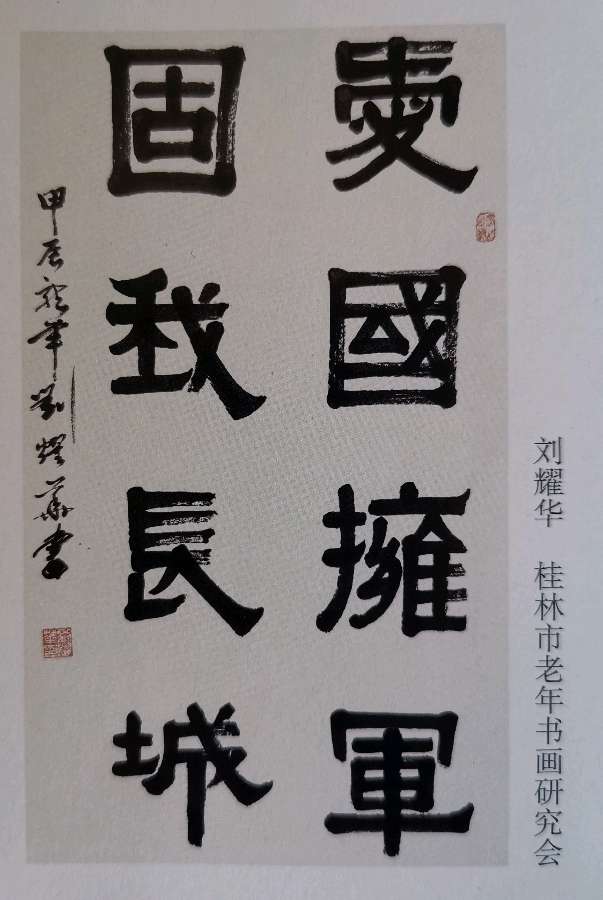 愛國擁軍
固我長城
甲辰龙年劉耀华書
刘耀华 桂林市老年书画研究会